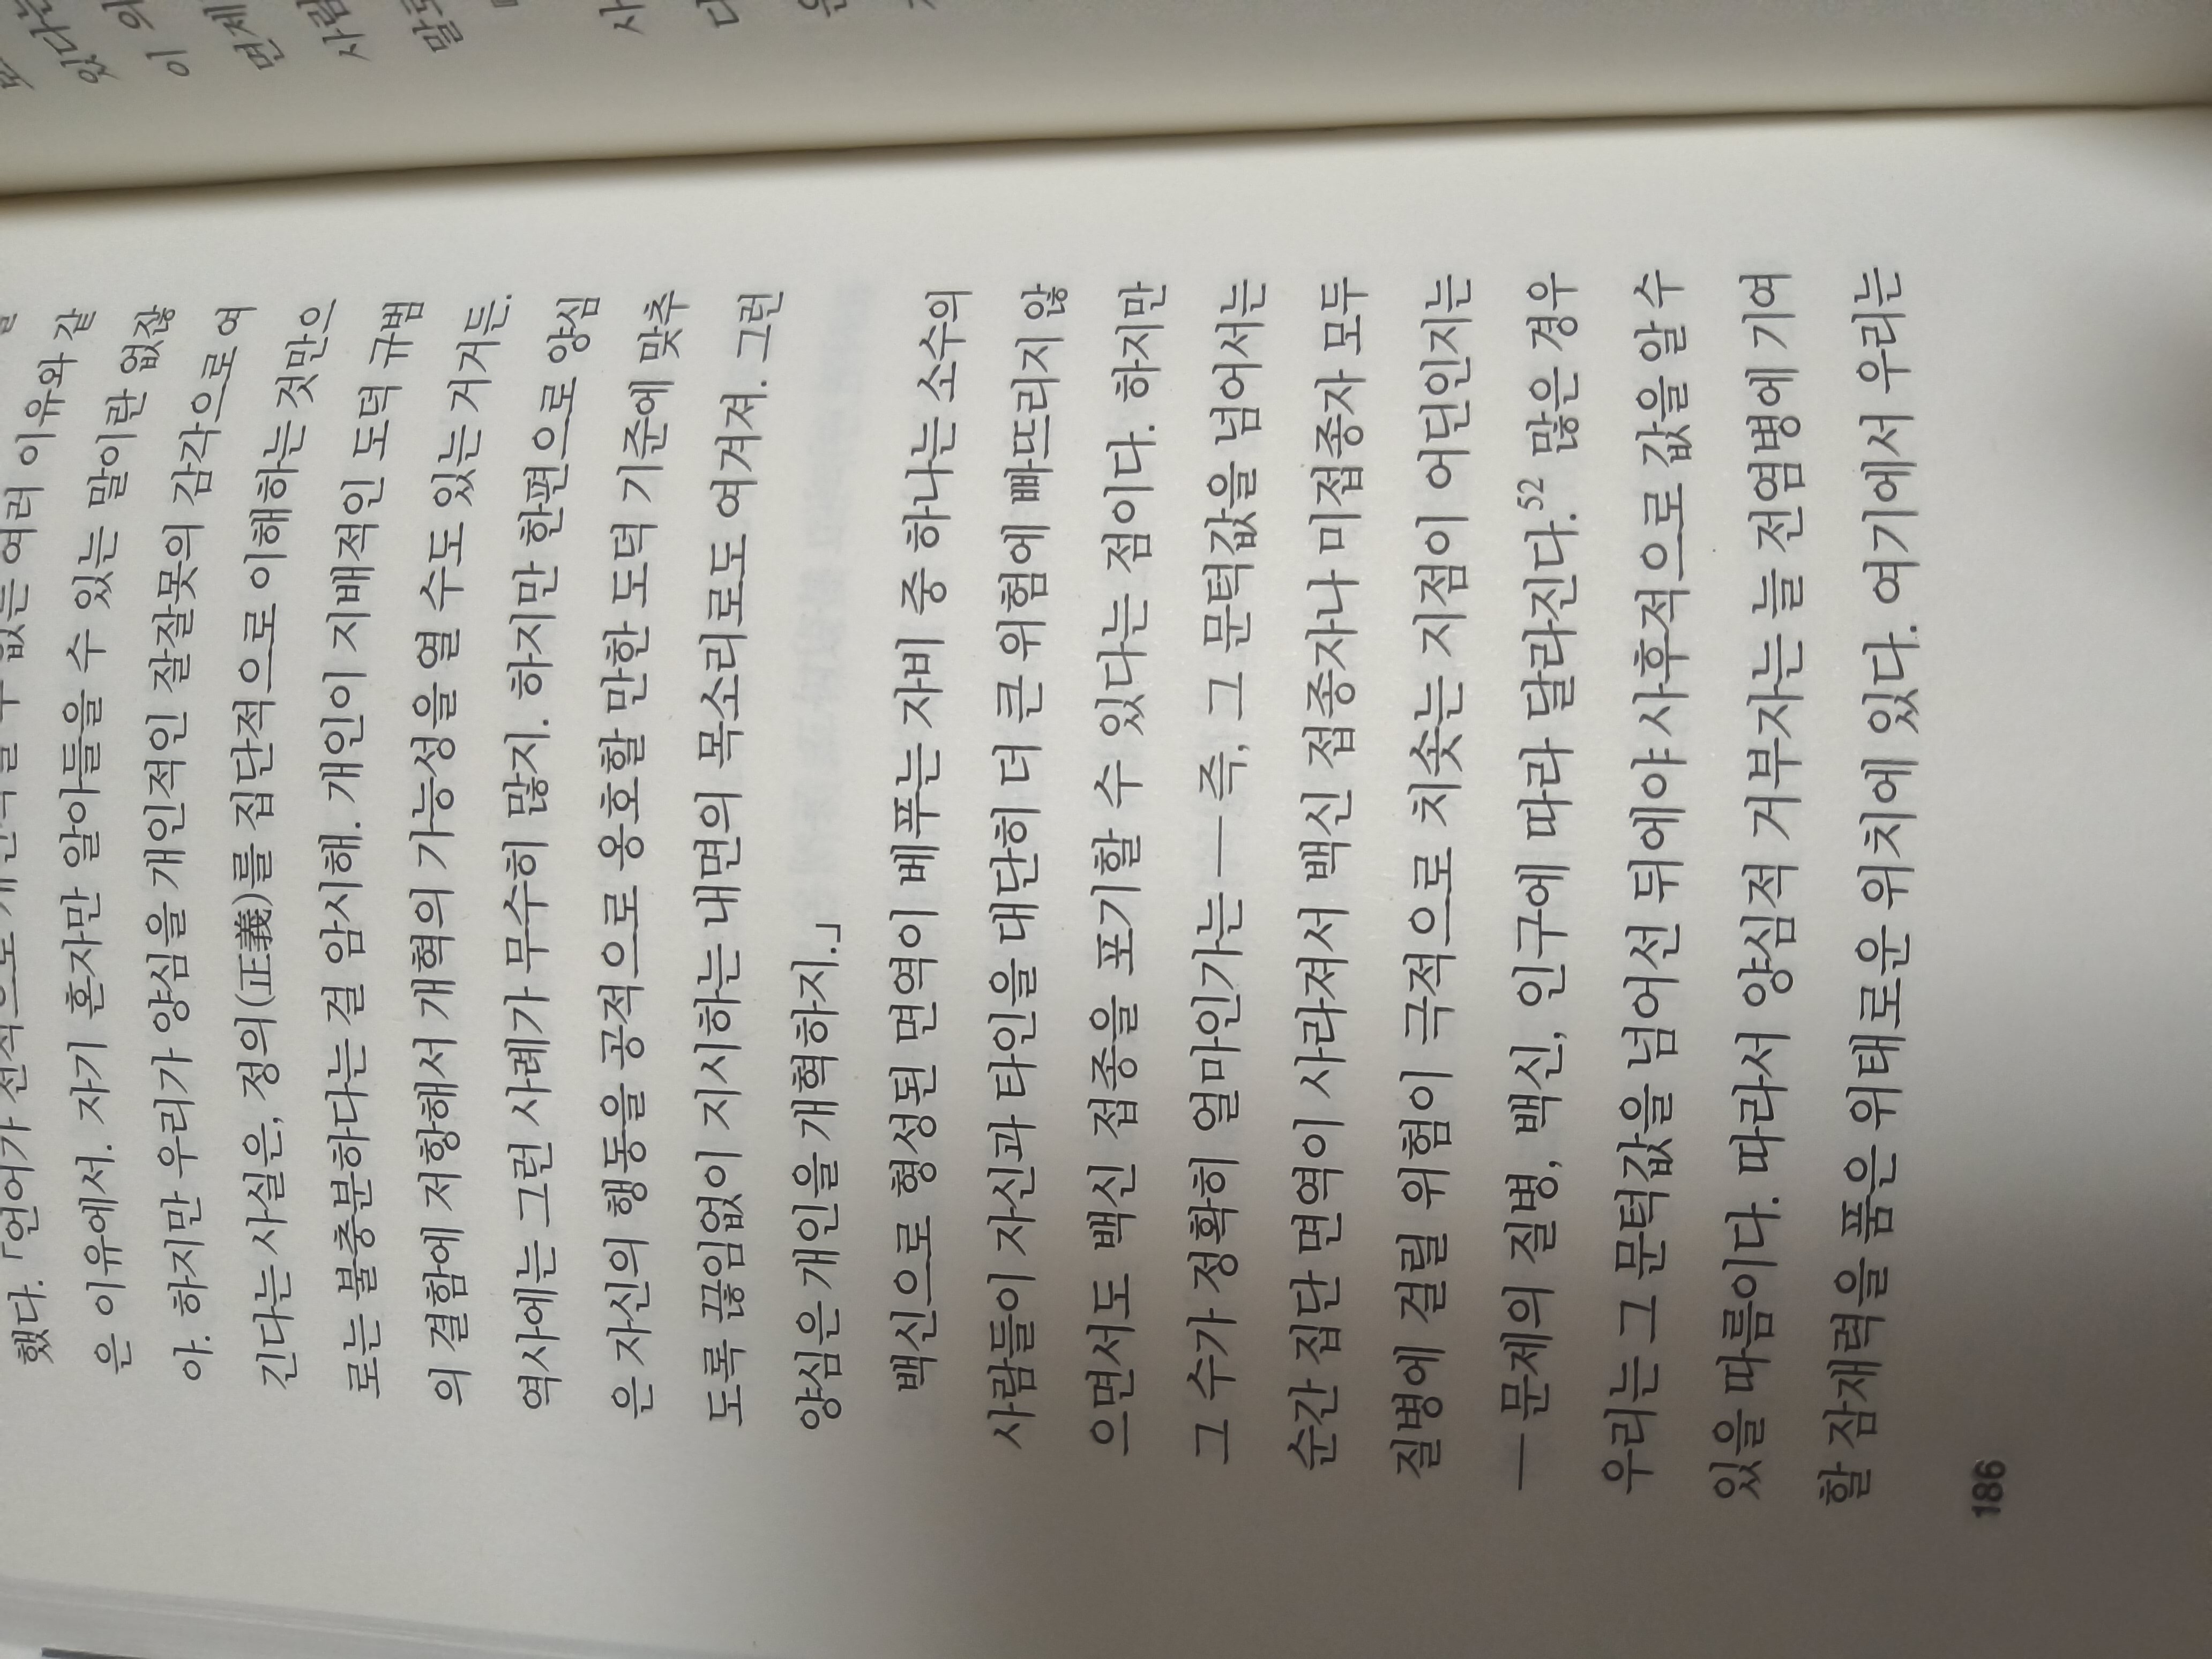 했다. 「언어가 전적으로 없는 여러 이유와 같
은 이유에서. 자기 혼자만 알아들을 수 있는 말이란 없잖
아. 하지만 우리가 양심을 개인적인 잘잘못의 감각으로 여
긴다는 사실은, 정의(正義)를 집단적으로 이해하는 것만으
로는 불충분하다는 걸 암시해. 개인이 지배적인 도덕 규범
의 결함에 저항해서 개혁의 가능성을 열 수도 있는 거거든.
역사에는 그런 사례가 무수히 많지. 하지만 한편으로 양심
은 자신의 행동을 공적으로 옹호할 만한 도덕 기준에 맞추
도록 끊임없이 지시하는 내면의 목소리로도 여겨져. 그런
양심은 개인을 개혁하지.」
백신으로 형성된 면역이 베푸는 자비 중 하나는 소수의
사람들이 자신과 타인을 대단히 더 큰 위험에 빠뜨리지 않
으면서도 백신 접종을 포기할 수 있다는 점이다. 하지만
그 수가 정확히 얼마인가는 ─ 즉, 그 문턱값을 넘어서는
순간 집단 면역이 사라져서 백신 접종자나 미접종자 모두
질병에 걸릴 위험이 극적으로 치솟는 지점이 어딘인지는
─ 문제의 질병, 백신, 인구에 따라 달라진다.52 많은 경우
우리는 그 문턱값을 넘어선 뒤에야 사후적으로 값을 알 수
있을 따름이다. 따라서 양심적 거부자는 늘 전염병에 기여
할 잠재력을 품은 위태로운 위치에 있다. 여기에서 우리는
186
있다는
이 의
면제
사람
사